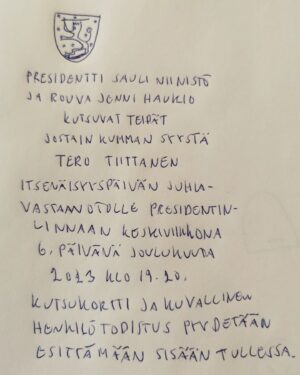 PRESIDENTTI SAULI NIINISTÖ
JA ROUVA JENNI HAUKIO
KUTSUVAT TEIDÄT
JOSTAIN KUMMAN SYYSTÄ
TERO TIITTANEN
ITSENÄISYYSPÄIVÄN JUHLA-
VASTAANOTOLLE PRESIDENTIN-
LINNAAN KESKIVIIKKONA
6. PÄIVÄVÄ JOULUKUUTA
2023 KLO 19.20.
KUTSUKORTTI JA KUVALLINEN
HENKILÖTODISTUS PYYDETÄÄN
ESITTÄMÄÄN SISÄÄN TULLESSA.